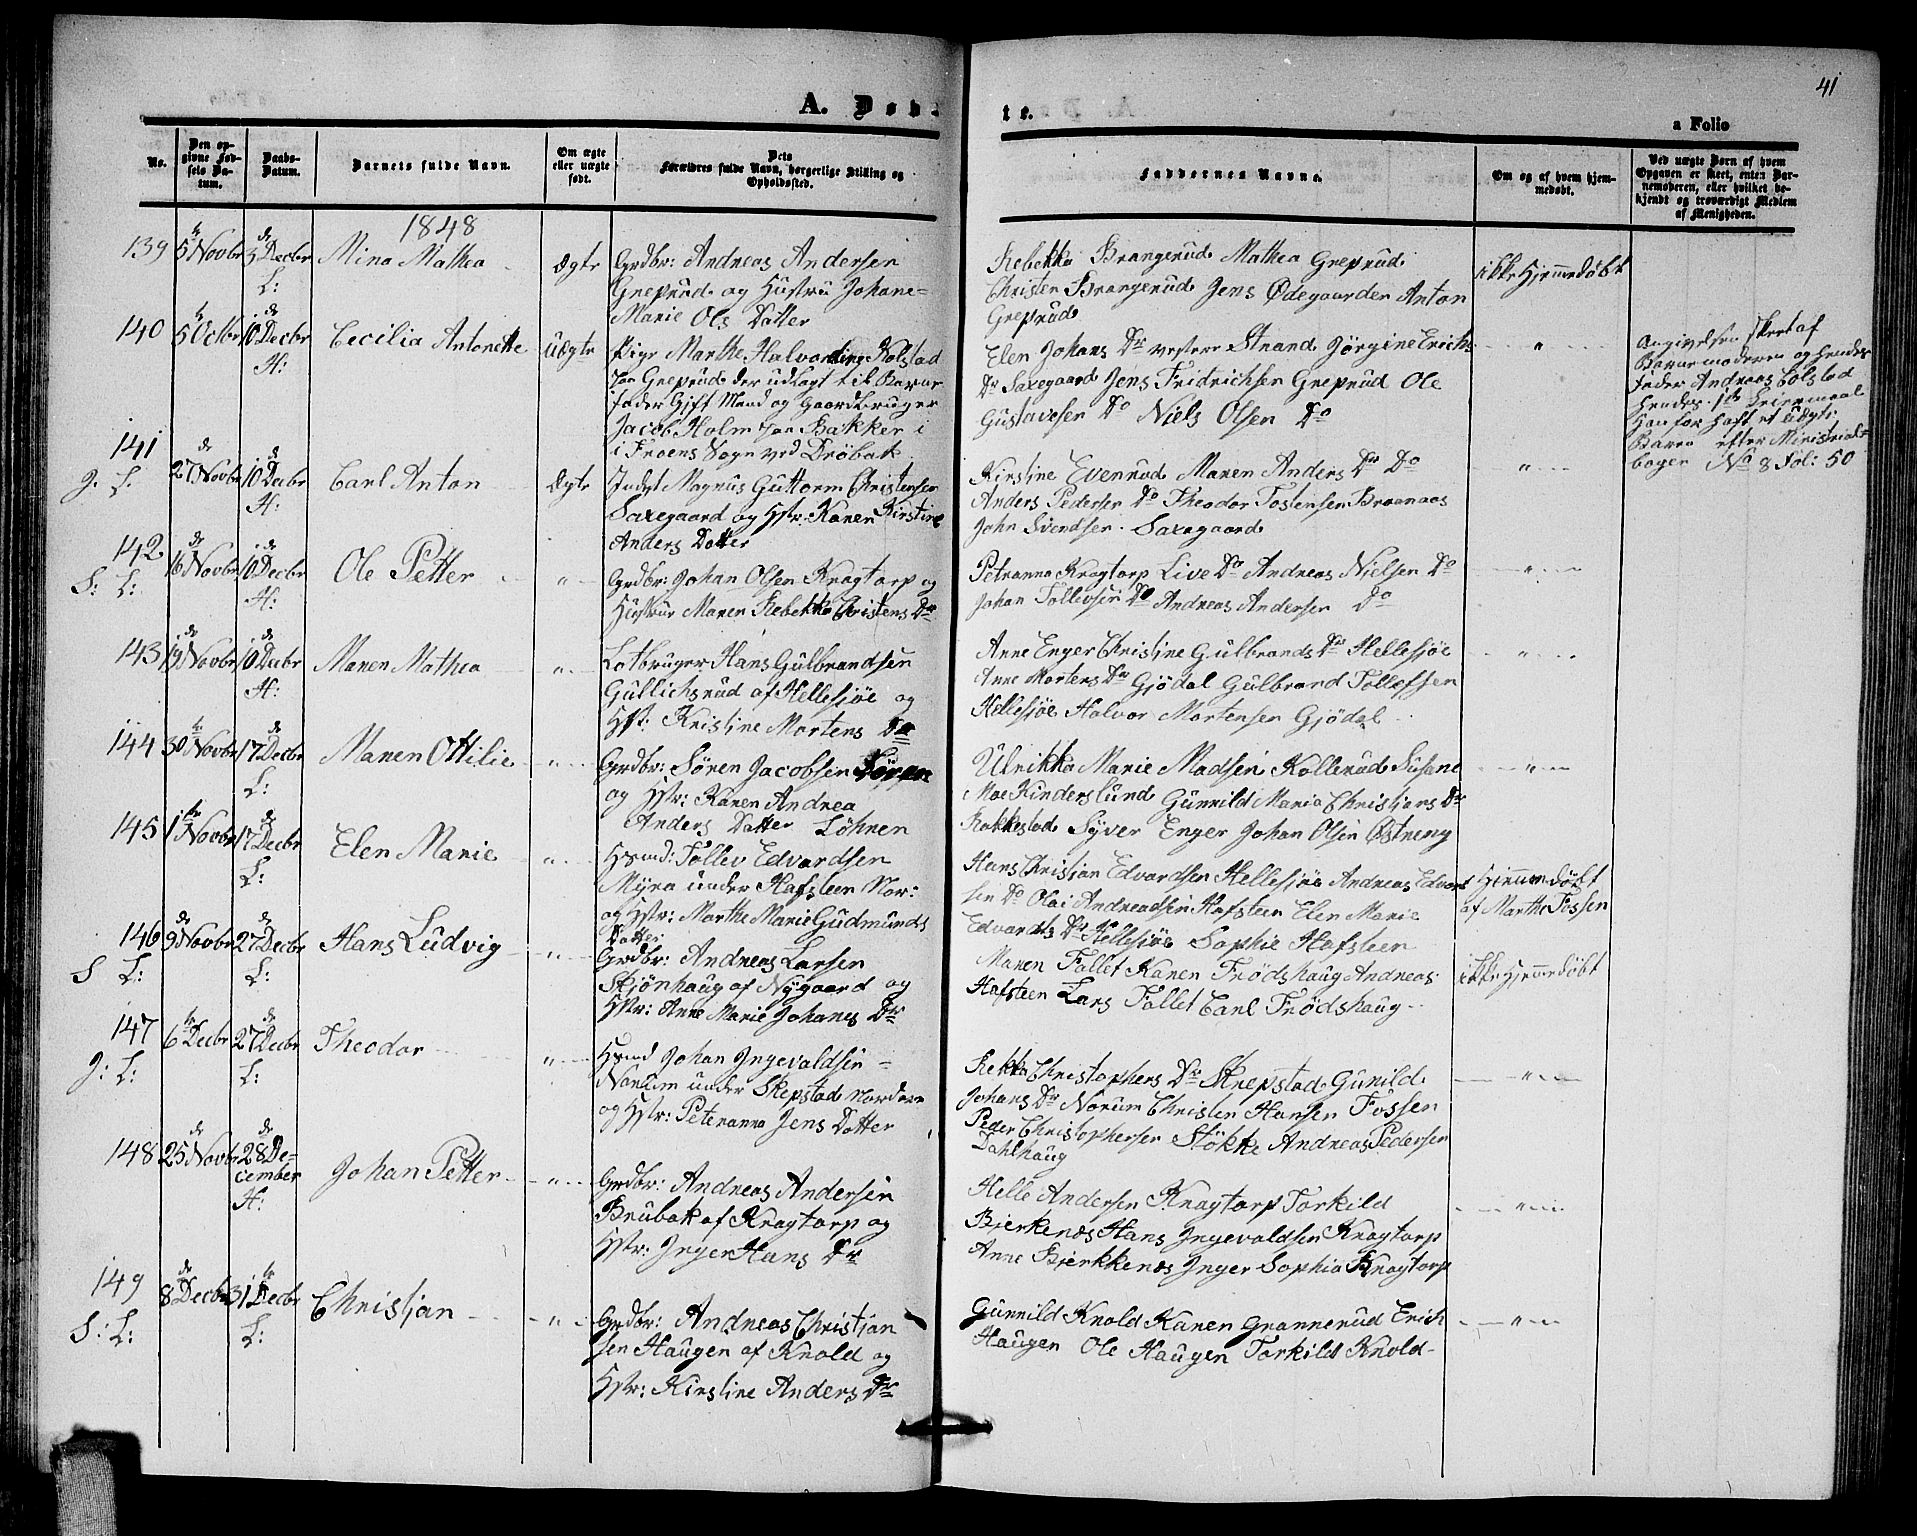 41
A. Døb-
te.
a Folio
No.
Den op-
givne Fød-
sels Da-
tum.
Daabs-
Datum.
Barnets fulde Navn.
Om ægte
eller uægte
født.
Dets
Forældres fulde Navn, borgerlige Stilling og
Opholdssted.
Faddernes Navne.
Om og af hvem hjem-
medøbt.
Ved uægte Børn af hvem
Opgaven er skeet, enten Bar-
nemoderen, eller hvilket be-
kjendt og troværdigt Medlem
af Menigheden.
1848
139 5te Novbr 3de Decbr L: Mina Mathea Ægte
Grdbr: Andreas Andersen
Greprud og Hustru Johane-
Marie Ols Datter
Rebekka Brangerud Mathea Greprud
Christen Brangerud Jens Ødegaarden Anton
Greprud
ikke Hjemmedøbt
140 5te Octbr 10de Decbr H: Cecilia Antonette Uægte
Pige Marthe Halvorsdtr Kolstad
paa Greprud der udlagt til Barne
fader Gift Mand og Gaardbruger
Jacob Holm paa Bakker i
i Froens Sogn ved Drøbak
Elen Johans Dr vestere Strand Jørgine Erichs
Dr Saxegaard Jens Fridrichsen Greprud Ole
Gustavesen Do Niels Olsen Do
"
Angivelsen skeet af
Barnemoderen og hendes
Fader Andreas Colstad
hendes 1te Leiermaal
Han før haft et Uægte
Barn efter Ministrial-
bogen No 8 Fol: 50
141 J. L. 27de Novbr 10de Decbr H: Carl Anton Ægte
Inds: Magnus Guttorm Christensen
Saxegaard og Hstr: Karen Kirstine
Anders Datter
Kirstine Evenrud Maren Anders Dr Do
Anders Pedersen Do Theodor Tostensen Braanaas
John Svendsen Saxegaard
"
142 S: L: 16de Novbr 10de Decbr H: Ole Petter "
Grdbr: Johan Olsen Kragtorp og
Hustru Maren Rebekka Christens Dr
Petranna Kragtorp Live Do Andreas Nielsen Do
Johan Tollevsen Do Andreas Andersen Do
"
143 19de Novbr 10de Decbr H: Maren Mathea "
Lotbruger Hans Gulbrandsen
Gullichsrud af Hellesjøe og
Hst: Kristine Mortens Dr
Anne Enger Christine Gulbrands Dr Hellesjøe
Anne Mortens Dr Gjødal Gulbrand Tollefsen
Hellesjøe Halvor Mortensen Gjødal
"
144 30te Novbr 17de Decbr L: Maren Ottilie "
Grdbr: Søren Jacobsen
og Hstr: Karen Andrea
Anders Datter Løhren
Ulrikka Marie Madsen Kollerud Susane
Moe Kinderslund Gunnild Maria Christians Dr
Rakkestad Syver Enger Johan Olsen Østreng
"
145 1te Novbr 17de Decbr L: Elen Marie "
Hsmd: Tollev Edvardsen
Myra under Hafsteen Nor:
og Hstr: Marthe Marie Gudmunds
Datter
Hans Christian Edvardsen Hellesjøe Andreas Edvard
sen Do Olai Andreadsen Hafsteen Elen Marie
Edvards Dr Hellesjøe Sophie Hafsteen
Hjemmedøbt
af Marthe Fossen
146 S L: 9de Novbr 27de Decbr L: Hans Ludvig "
Grdbr: Andreas Larsen
Skjønhaug af Nygaard og
Hstr: Anne Marie Johanes Dr
Maren Fallet Karen Frødshaug Andreas
Hafsteen Lars Fallet Carl Frødshaug
ikke Hjemmedøbt
147 J: L: 6te Decbr 27de Decbr L: Theodor "
Hsmd Johan Ingevaldsen
Norum under Skepstad Nordere
og Hstr: Peteranna Jens Datter
Rekka Christophers Dr Skrepstad Gunild
Johans Dr Norum Christen Hansen Fossen
Peder Christophersen Støkke Andreas Pedersen
Dahlhaug
"
148 25de Novbr 28de De-
cember H: Johan Petter "
Grdbr: Andreas Andersen
Brubak af Kragtorp og
Hstr: Inger Hans Dr
Helle Andersen Kragtorp Torkild
Bjerkenæs Hans Ingevaldsen Kragtorp
Anne Bjerkkenæs Inger Sophia Kragtorp
"
149 S: L: 8de Decbr 31te Decbr L: Christjan "
Grdbr: Andreas Christjan
sen Haugen af Knold og
Hstr: Kirstine Anders Dr
Gunnild Knold Karen Grannerud Erich
Haugen Ole Haugen Torkild Knold
"